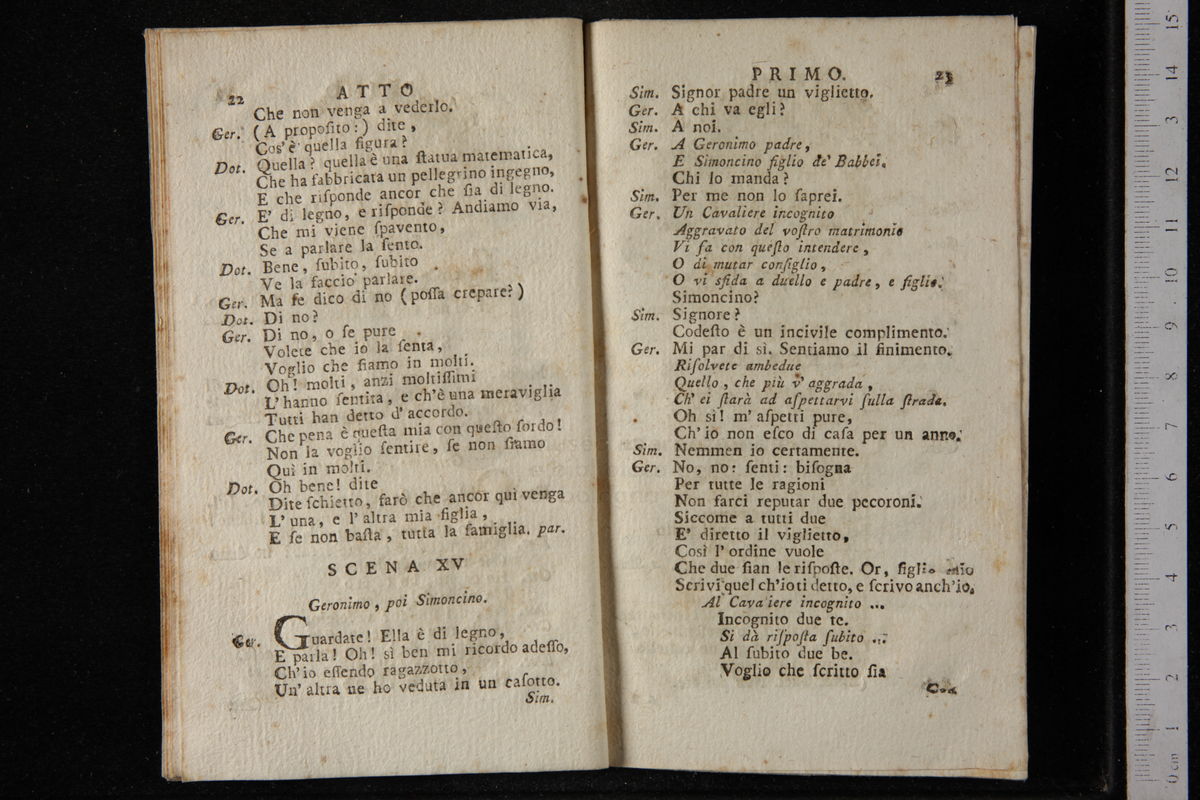 22 ATTO
Che non venga a vederlo.
Ger. (A propoſito:) dite,
Cos'è quella figura?
Dot. Quella? quella è una ſtatua matematica,
Che ha fabbricata un pellegrino ingegno,
E che riſponde ancor che ſia di legno.
Ger. E' di legno, e riſponde? Andiamo via,
Che mi viene ſpavento,
Se a parlare la ſento.
Dot. Bene, ſubito, ſubito
Ve la faccio parlare.
Ger. Ma ſe dico di no (poſſa crepare?)
Dot. Di no?
Ger. Di no, o ſe pure
Volete che io la ſenta,
Voglio che ſiamo in molti.
Dot. Oh! molti, anzi moltiſſimi
L'hanno ſentita, e ch'è una meraviglia
Tutti han detto d'accordo.
Ger. Che pena è queſta mia con queſto ſordo!
Non la voglio ſentire, ſe non ſiamo
Quì in molti.
Dot. Oh bene! dite
Dite ſchietto, farò che ancor quì venga
L'una, e l'altra mia figlia,
E ſe non baſta, tutta la famiglia. par.
SCENA XV
Geronimo, poi Simoncino.
Ger. Guardate! Ella è di legno,
E parla! Oh! sì ben mi ricordo adeſſo,
Ch'io eſſendo ragazzotto,
Un'altra ne ho veduta in un caſotto.
Sim.
PRIMO. 23
Sim. Signor padre un viglietto.
Ger. A chi va egli?
Sim. A noi.
Ger. A Geronimo padre,
E Simoncino figlio de' Babbei.
Chi lo manda?
Sim. Per me non lo ſaprei.
Ger. Un Cavaliere incognito
Aggravato del voſtro matrimonio
Vi fa con queſto intendere,
O di mutar conſiglio,
O vi sfida a duello e padre, e figlio.
Simoncino?
Sim. Signore?
Codeſto è un incivile complimento.
Ger. Mi par di sì. Sentiamo il finimento.
Riſolvete ambedue
Quello, che più v'aggrada,
Ch'ei ſtarà ad aſpettarvi ſulla ſtrada.
Oh sì! m'aſpetti pure,
Ch'io non eſco di caſa per un anno.
Sim. Nemmen io certamente.
Ger. No, no: ſenti: biſogna
Per tutte le ragioni
Non farci reputar due pecoroni.
Siccome a tutti due
E' diretto il viglietto,
Così l'ordine vuole
Che due ſian le riſpoſte. Or, figlio mio
Scrivi quel ch'io ti detto, e ſcrivo anch'io.
Al Cavaliere incognito ...
Incognito due te.
Si dà riſpoſta ſubito ...
Al ſubito due be.
Voglio che ſcritto ſia